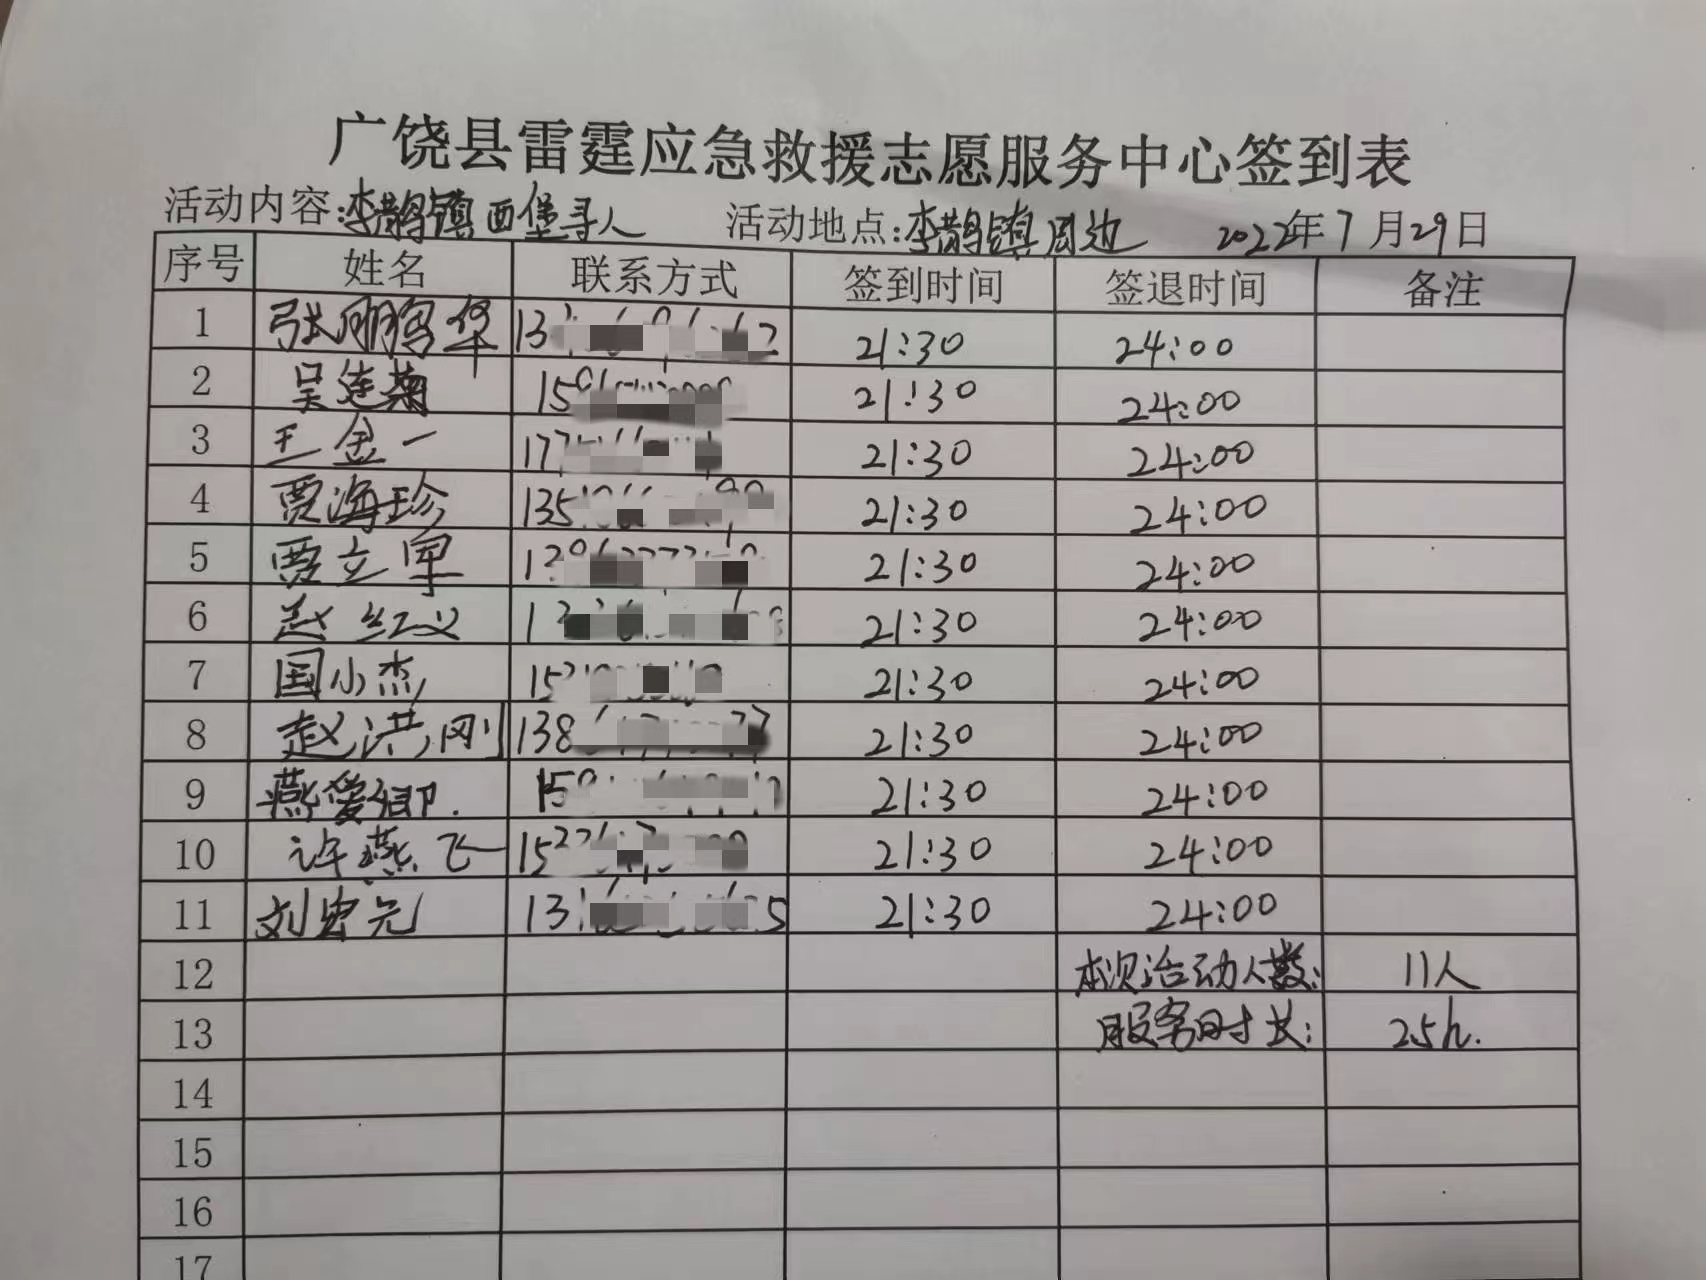 广饶县雷霆应急救援志愿服务中心签到表
活动内容:李鹊镇西堡寻人 活动地点:李鹊镇周边 2022年7月29日
序号 姓名 联系方式 签到时间 签退时间 备注
1 张鹏华 13 21:30 24:00
2 吴连菊 15 21:30 24:00
3 王金一 17 21:30 24:00
4 贾海珍 135 21:30 24:00
5 贾立军 1 21:30 24:00
6 赵红义 1 21:30 24:00
7 国小杰 15 21:30 24:00
8 赵洪刚 138 21:30 24:00
9 燕爱卿 15 21:30 24:00
10 许燕飞 15 21:30 24:00
11 刘宏元 13 21:30 24:00
12 本次活动人数: 11人
13 服务时长: 25h.
14
15
16
17